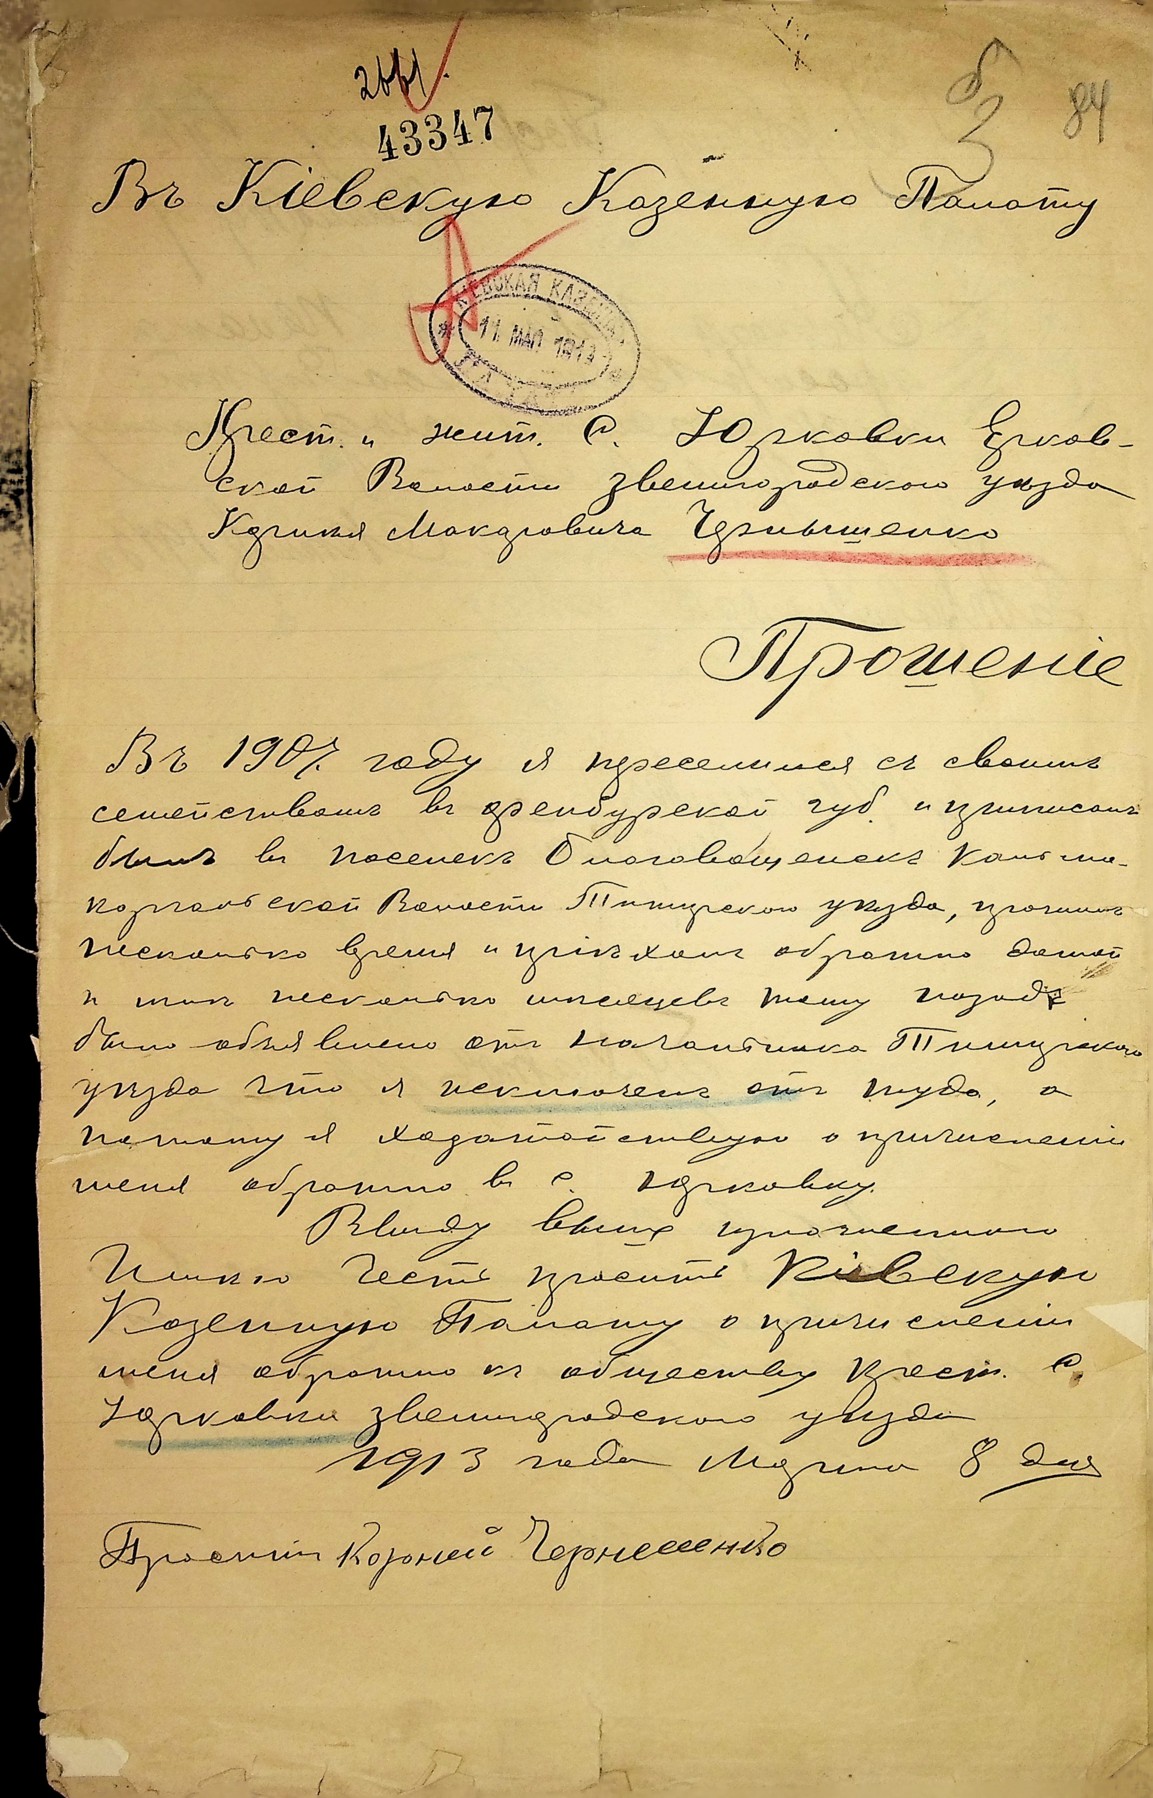 2661.
43347
84
Въ Кіевскую Казенную Палату
КІЕВСКАЯ КАЗЕННАЯ
11 МАР 1913
Крест. и жит. С. Юрковки Ерков-
ской Волости звенигородского уѣзда
Корнѣя Макаровича Чернышенко
Прошеніе
Въ 1907 году я преселился съ своимъ
семействомъ въ оренбурской губ. и приписанъ
былъ въ поселекъ Благовѣщенскъ Кольма-
Волости уѣзда, проживъ
несколько время и пріѣхалъ обратно домой
и такъ несколько мѣсяцевъ тому назадъ
было объявлено отъ началника
уѣзда что я исключенъ отъ туда, а
потому я ходатойствую о причисленіи
меня обратно в с. юрковку.
Ввиду выше изложенного
Имѣю честь просить Кіевскую
Казенную Палату о причисленіи
меня обратно къ обществу крест. С.
юрковки звенигородского уѣзда
1913 года Марта 8 дня
Проситъ Корней Чернешенко